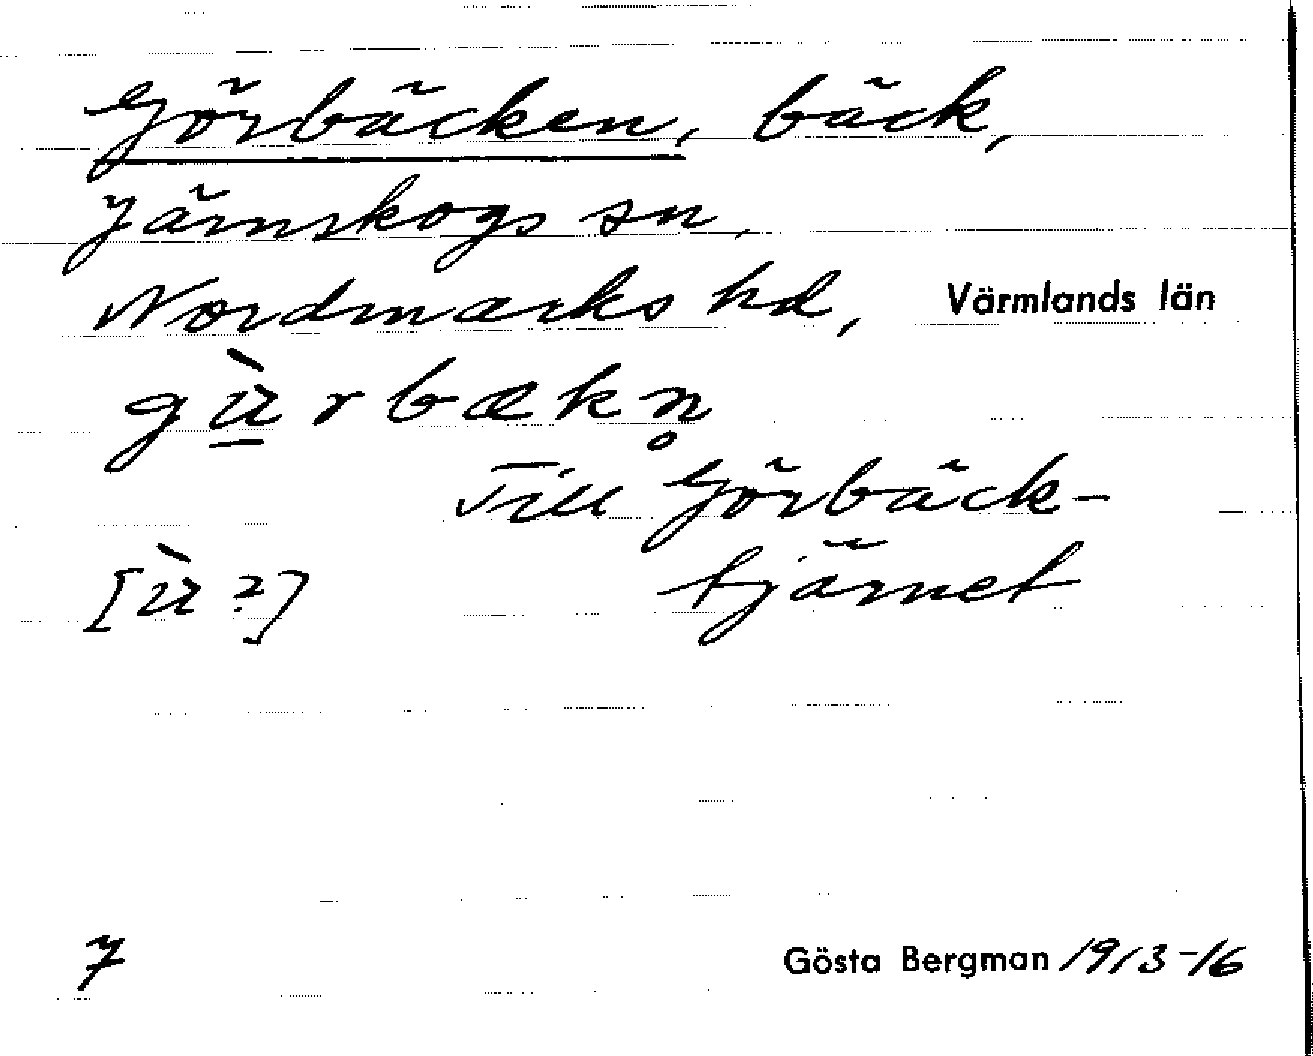 Görbäcken, bäck,
Järnskogs sn,
Nordmarks hd, Värmlands län
gù̱rbækn̥
Till Görbäck-
[ù?] tjärnet
7 Gösta Bergman 1913-16